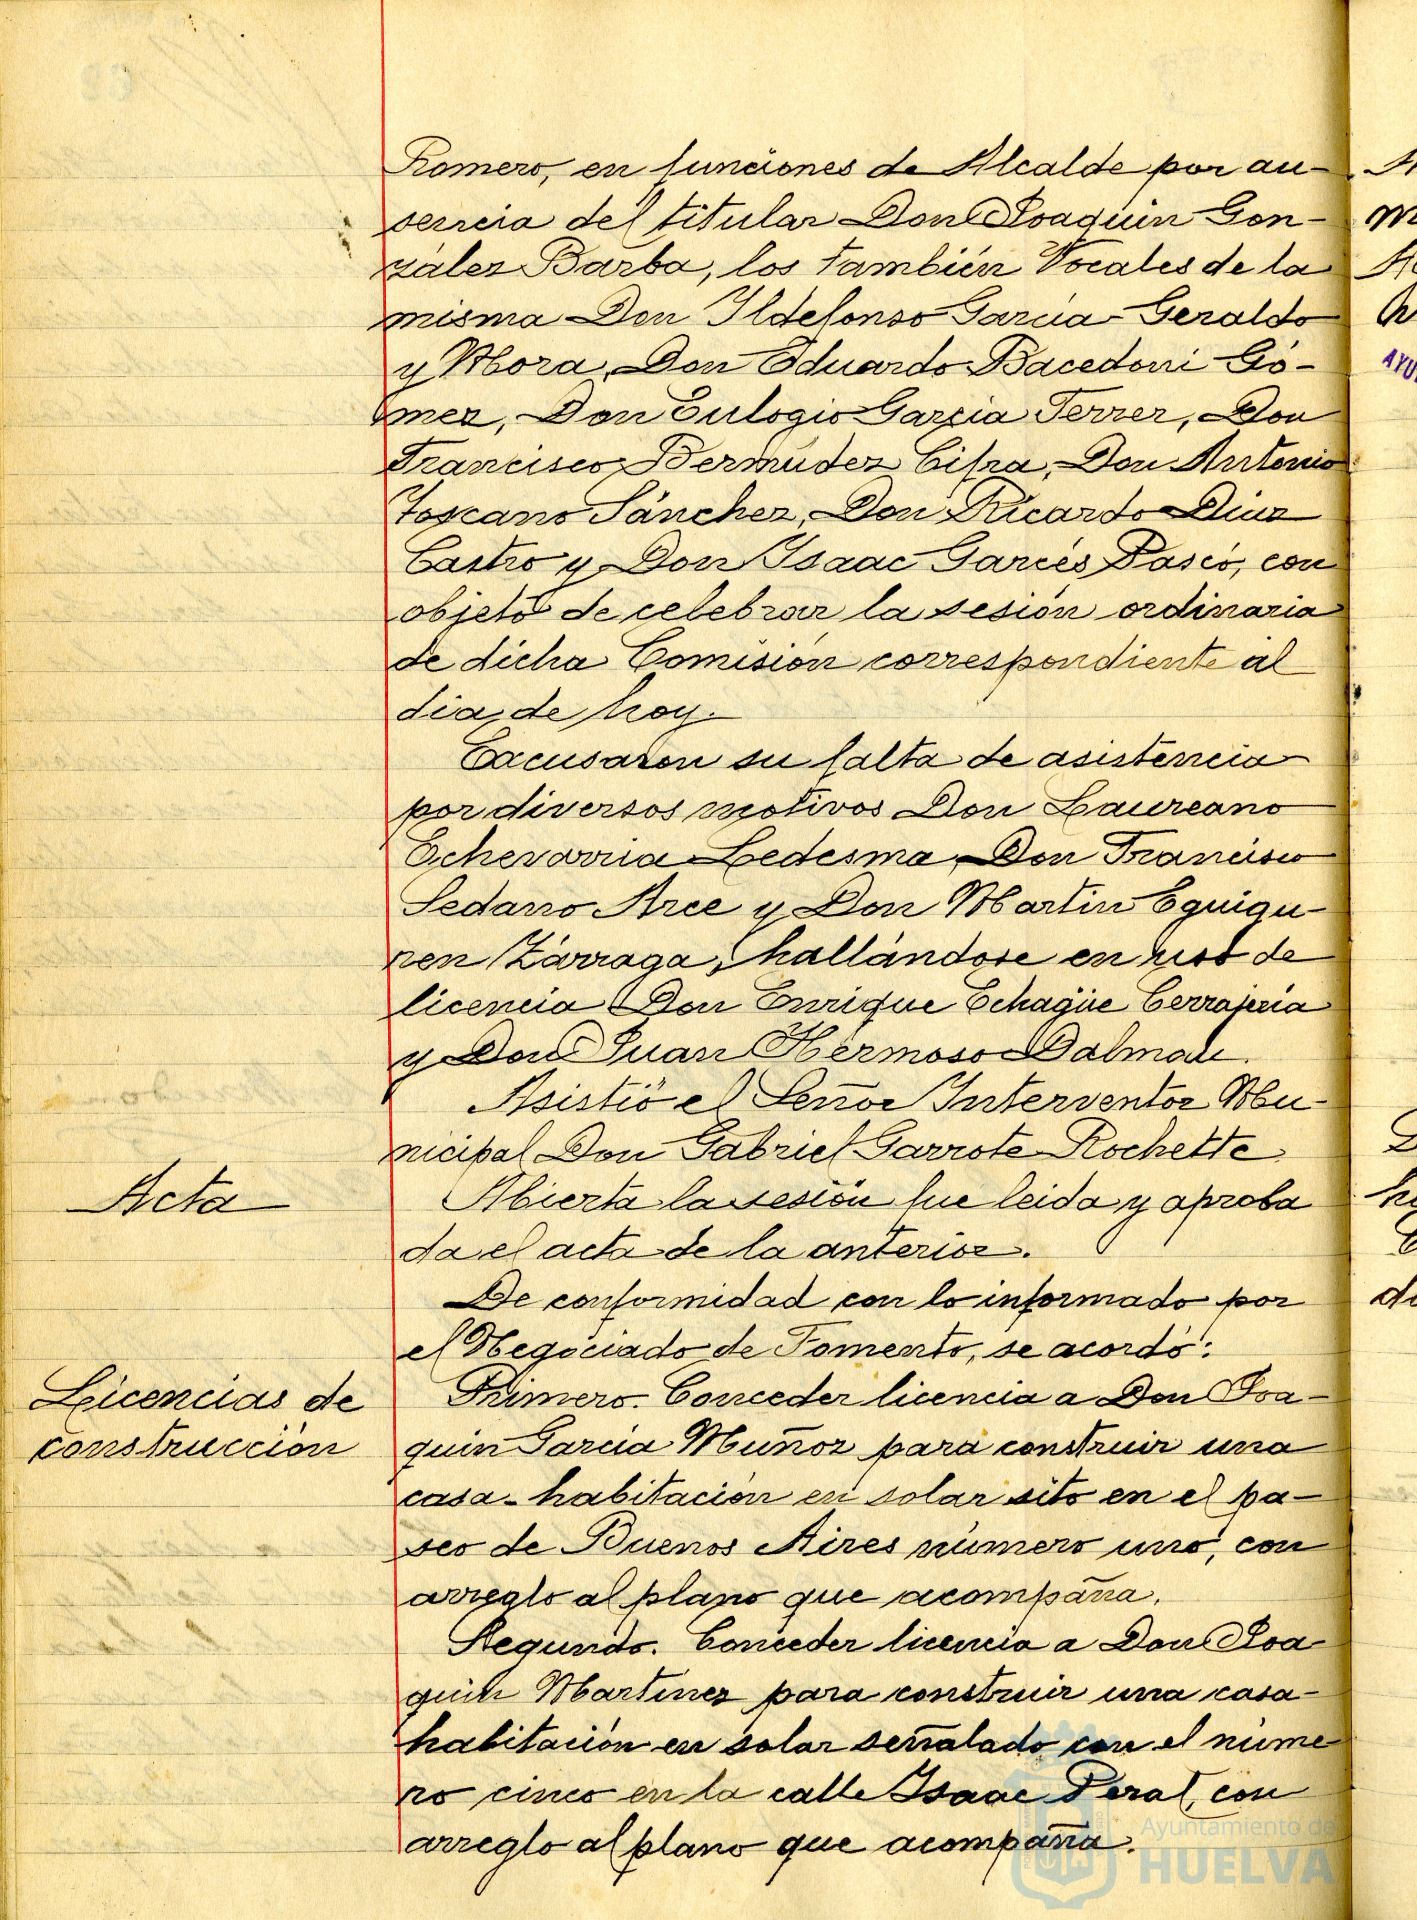 Romero, en funciones de Alcalde por au-
sencia del titular Don Joaquin Gon-
zález Barba, los también Vocales de la
misma Don Ildefonso García-Geraldo
y Mora, Don Eduardo Bacedoni Gó-
mez, Don Eulogio García Ferrer, Don
Francisco Bermúdez Cifra, Don Antonio
Toscano Sánchez, Don Ricardo Diaz
Castro y Don Isaac Garcés Pascó, con
objeto de celebrar la sesión ordinaria
de dicha Comisión correspondiente al
dia de hoy.
Excusaron su falta de asistencia
por diversos motivos Don Laureano
Echevarria Ledesma, Don Francisco
Sedano Arce y Don Martin Eguigu-
ren Zárraga, hallándose en uso de
licencia Don Enrique Echagüe Cerrajería
y Don Juan Hermoso Dalmau.
Asistió el Señor Interventor Mu-
nicipal Don Gabriel Garrote Rochette
Acta
Abierta la sesión fue leida y aproba
da el acta de la anterior.
De conformidad con lo informado por
el Negociado de Fomento, se acordó:
Licencias de
construcción
Primero. Conceder licencia a Don Joa-
quin García Muñoz para construir una
casa-habitación en solar sito en el pa-
seo de Buenos Aires número uno, con
arreglo al plano que acompaña.
Segundo. Conceder licencia a Don Joa-
quin Martinez para construir una casa-
habitación en solar señalado con el núme-
ro cinco en la calle Isaac Peral, con
arreglo al plano que acompaña.
Ayuntamiento de
HUELVA